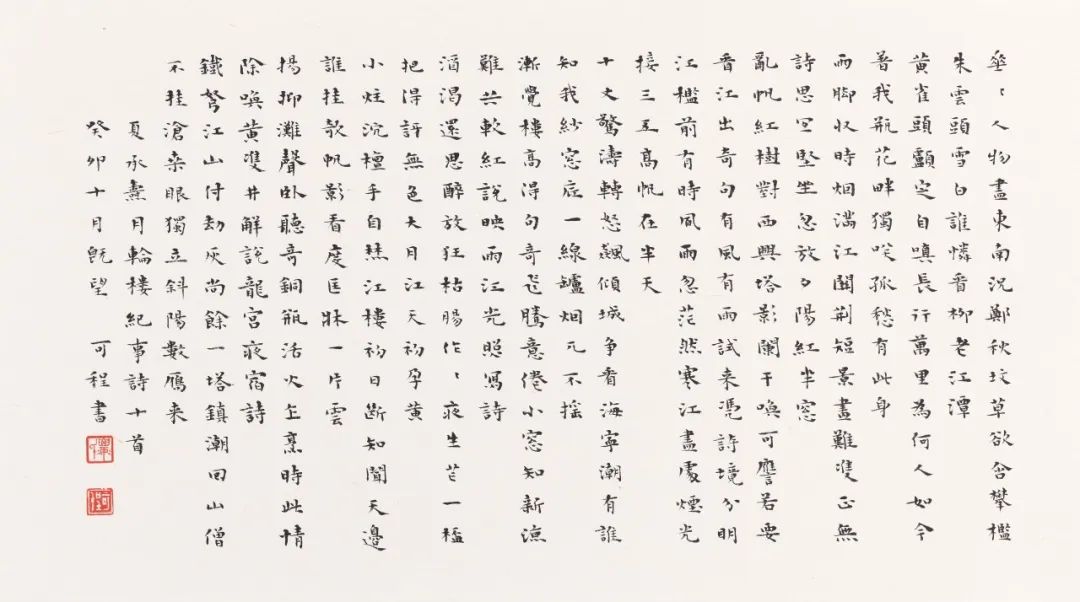 華〻人物盡東南況鄭秋墳草欲含攀檻
朱雲頭雪白誰憐看柳老江潭
黃雀頭顱定自嗔長行萬里為何人如今
著我瓶花畔獨唉孤愁有此身
雨腳收時烟滿江關荊短景畫難雙正無
詩思宜堅坐忽放夕陽紅半窓
亂帆紅樹對西興塔影闌干喚可譍若要
看江出奇句有風有雨試來憑詩境分明
江檻前有時風雨忽茫然寒江盡處煙光
接三五高帆在半天
十丈驚濤轉怒飆傾城爭看海寧潮有誰
知我紗窓底一線鑪烟兀不搖
漸覺樓高得句奇飛騰意倦小窓知新涼
難共軟紅說映雨江光照寫詩
酒渴還思醉放狂枯腸作〻夜生芒一檻
把得評無色大月江天初孕黃
小炷沉檀手自焚江樓初日斷知聞天邊
誰挂欹帆影看度匡牀一片雲
揚抑灘聲臥聽奇銅瓶活火上烹時此情
除喚黃雙井解說龍宮夜宿詩
鐵弩江山付劫灰尚餘一塔鎮潮回山僧
不挂滄桑眼獨立斜陽數雁來
夏承燾月輪樓紀事詩十首
癸卯十月既望 可程書